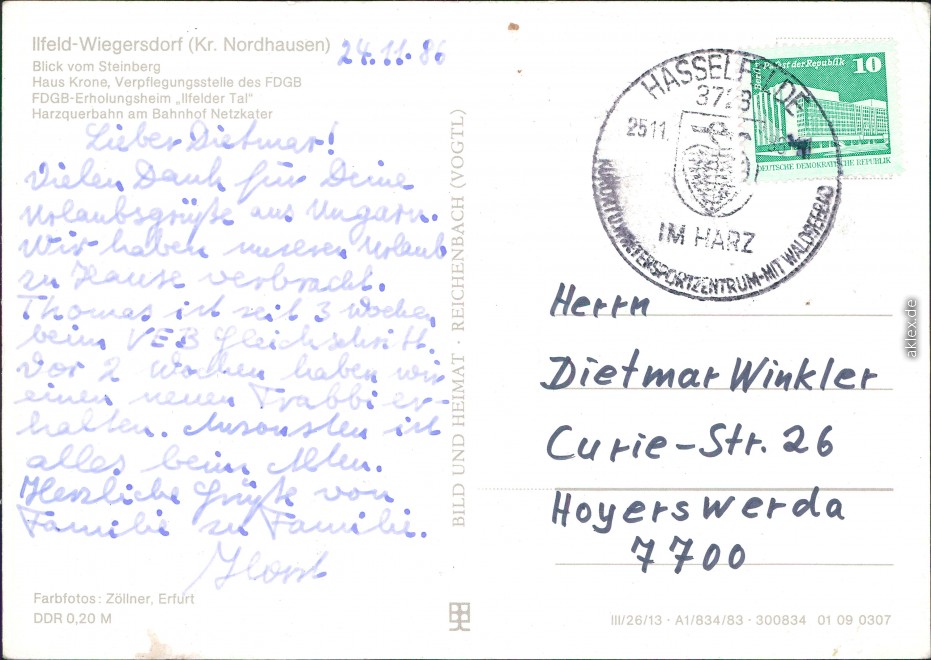 Ilfeld-Wiegersdorf (Kr. Nordhausen)
24.11.86
Blick vom Steinberg
Haus Krone, Verpflegungsstelle des FDGB
FDGB-Erholungsheim „Ilfelder Tal"
Harzquerbahn am Bahnhof Netzkater
Lieber Dietmar!
Vielen Dank für Deine
Urlaubsgrüße aus Ungarn.
Wir haben unseren Urlaub
zu Hause verbracht.
Thomas ist seit 3 Wochen
beim VEB Gleichschritt.
Vor 2 Wochen haben wir
einen neuen Trabbi er-
halten. Ansonsten ist
alles beim Alten.
Herzliche Grüße von
Familie zu Familie.
Horst
Farbfotos: Zöllner, Erfurt
DDR 0,20 M
BILD UND HEIMAT · REICHENBACH (VOGTL)
HASSELFELDE
3723
25.11.
IM HARZ
KURORT U. WINTERSPORTZENTRUM-MIT WALDSEEBAD
Berlin, Palast der Republik 10
DEUTSCHE DEMOKRATISCHE REPUBLIK
Herrn
Dietmar Winkler
Curie-Str. 26
Hoyerswerda
7700
III/26/13 · A1/834/83 · 300834 01 09 0307
aklex.de